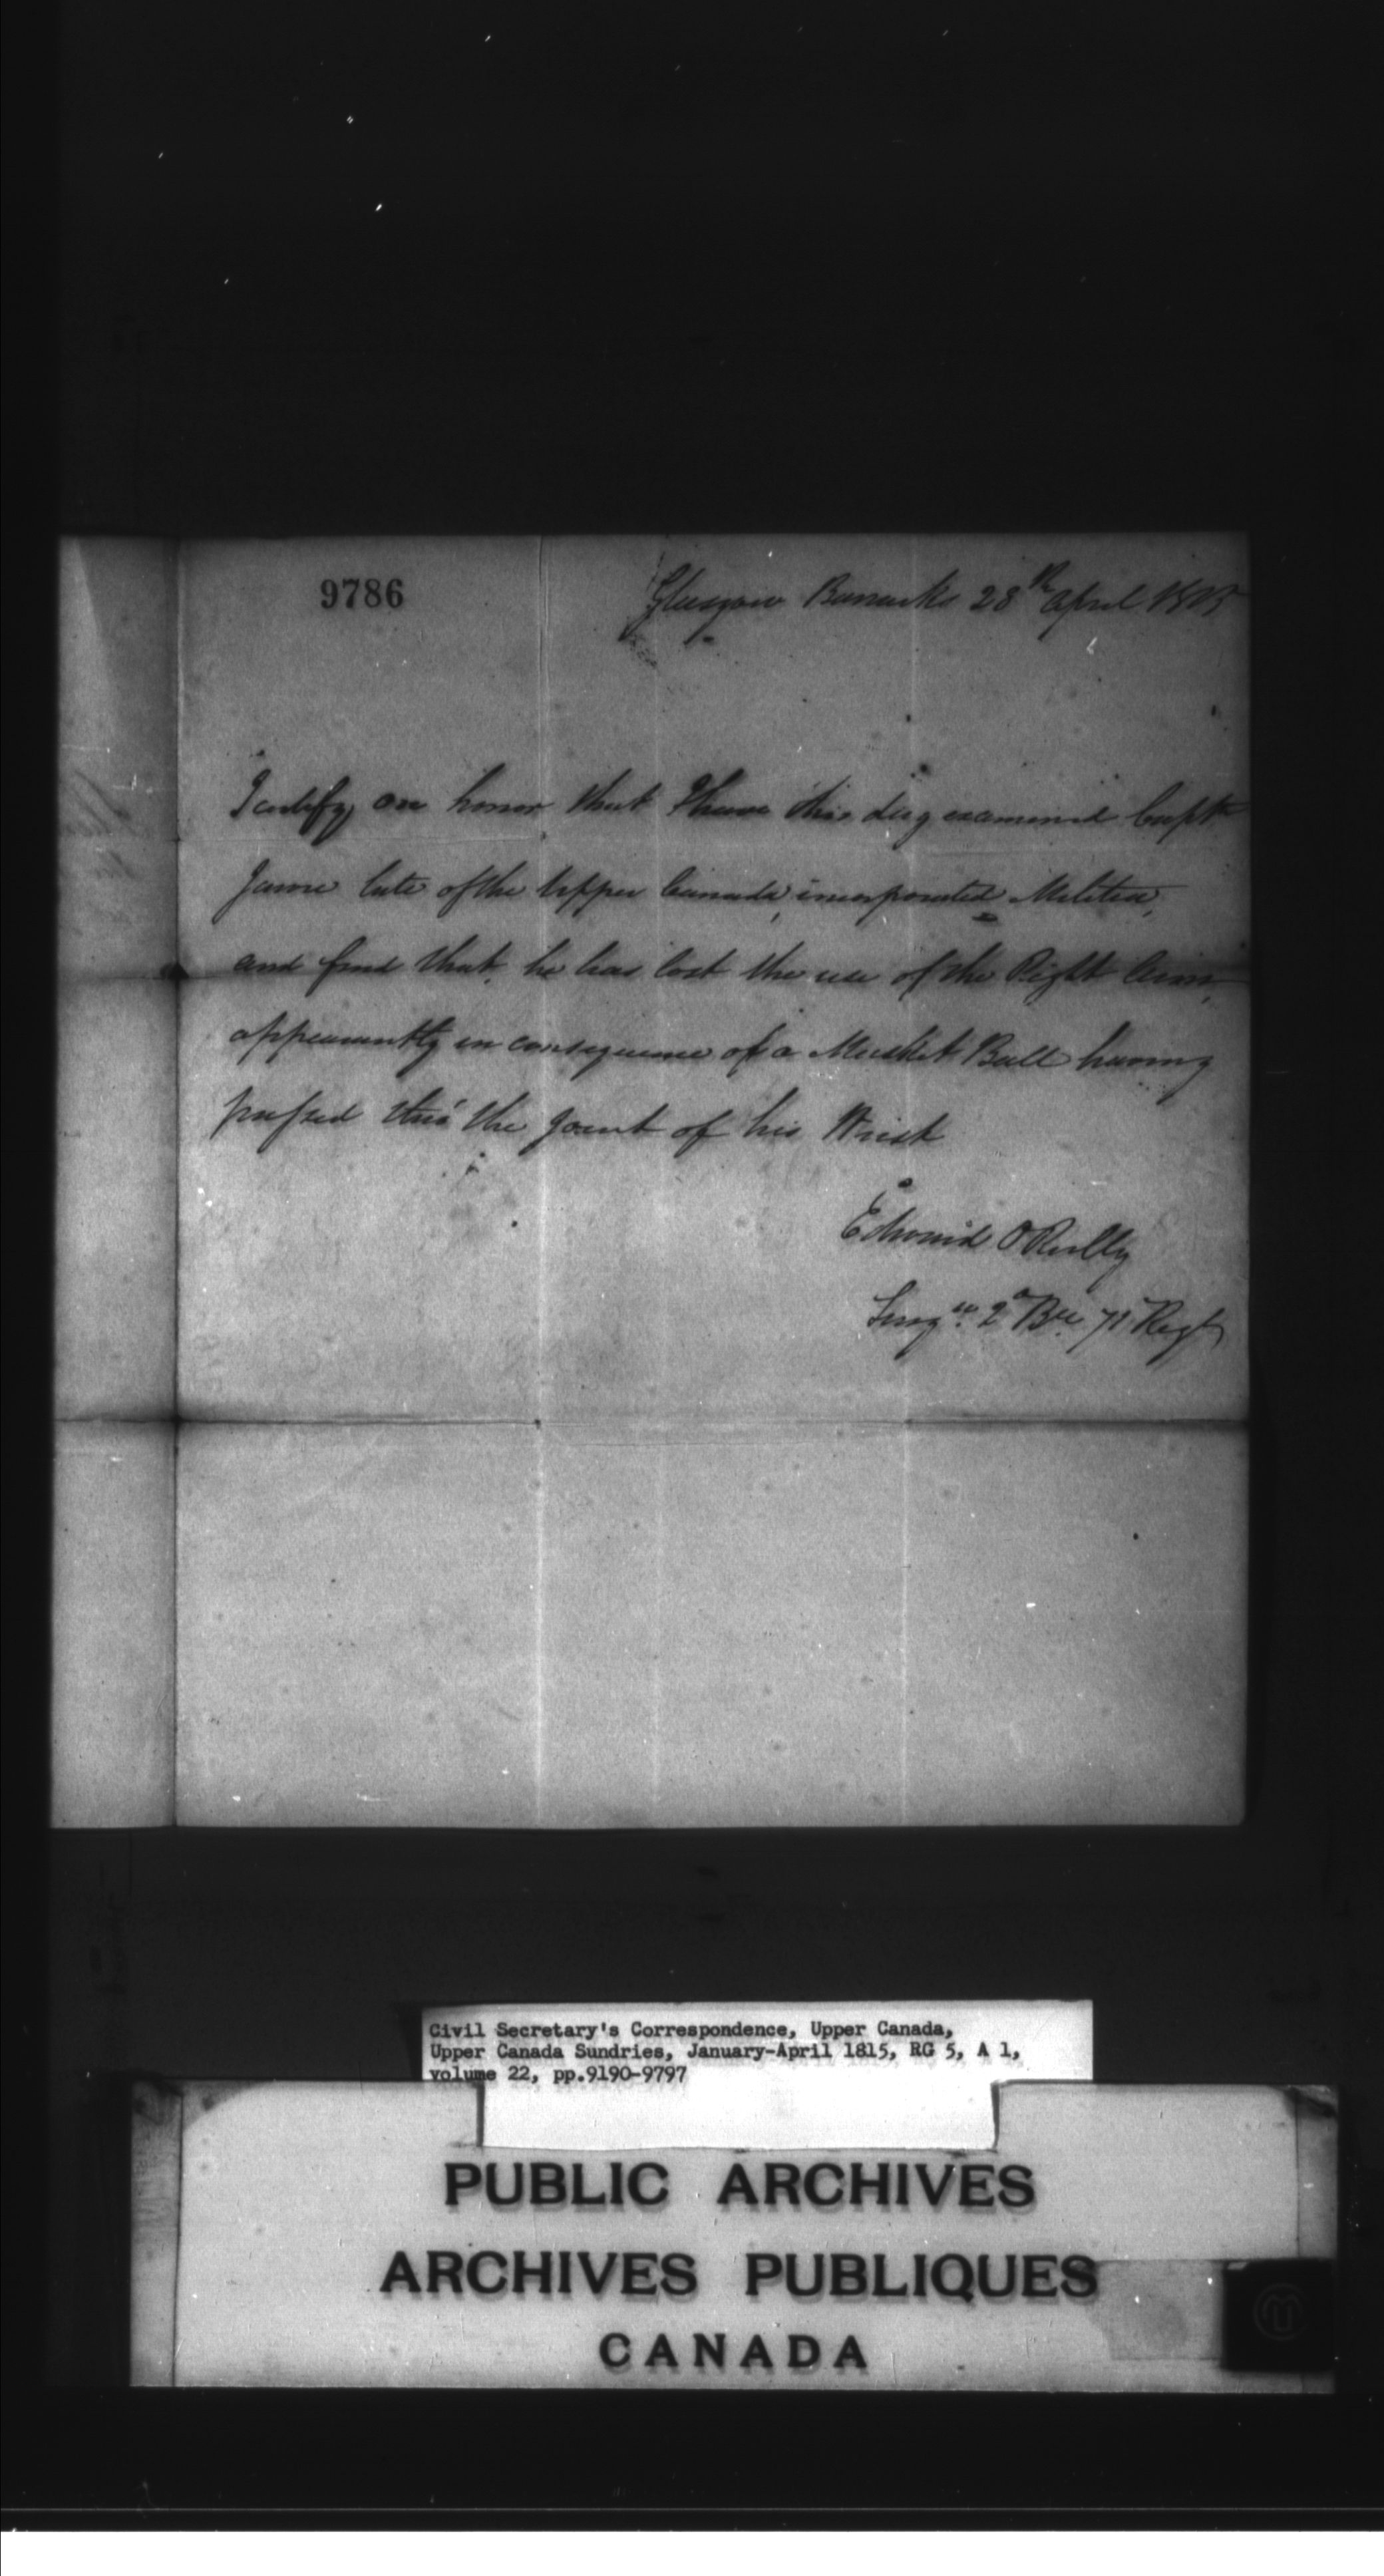 9786
Glasgow Barracks 28th April 1815
I certify on honor that I have this day examined Captn
Jarvie late of the Upper Canada, incorporated Militia,
and find that he has lost the use of the Right Arm,
appearantly in consequence of a Musket Ball having
passed thro' the joint of his Wrist
Edward O'Reilly
Surgn. 2d Bn. 71 Regt
Civil Secretary's Correspondence, Upper Canada,
Upper Canada Sundries, January-April 1815, RG 5, A 1,
volume 22, pp.9190-9797
PUBLIC ARCHIVES
ARCHIVES PUBLIQUES
CANADA